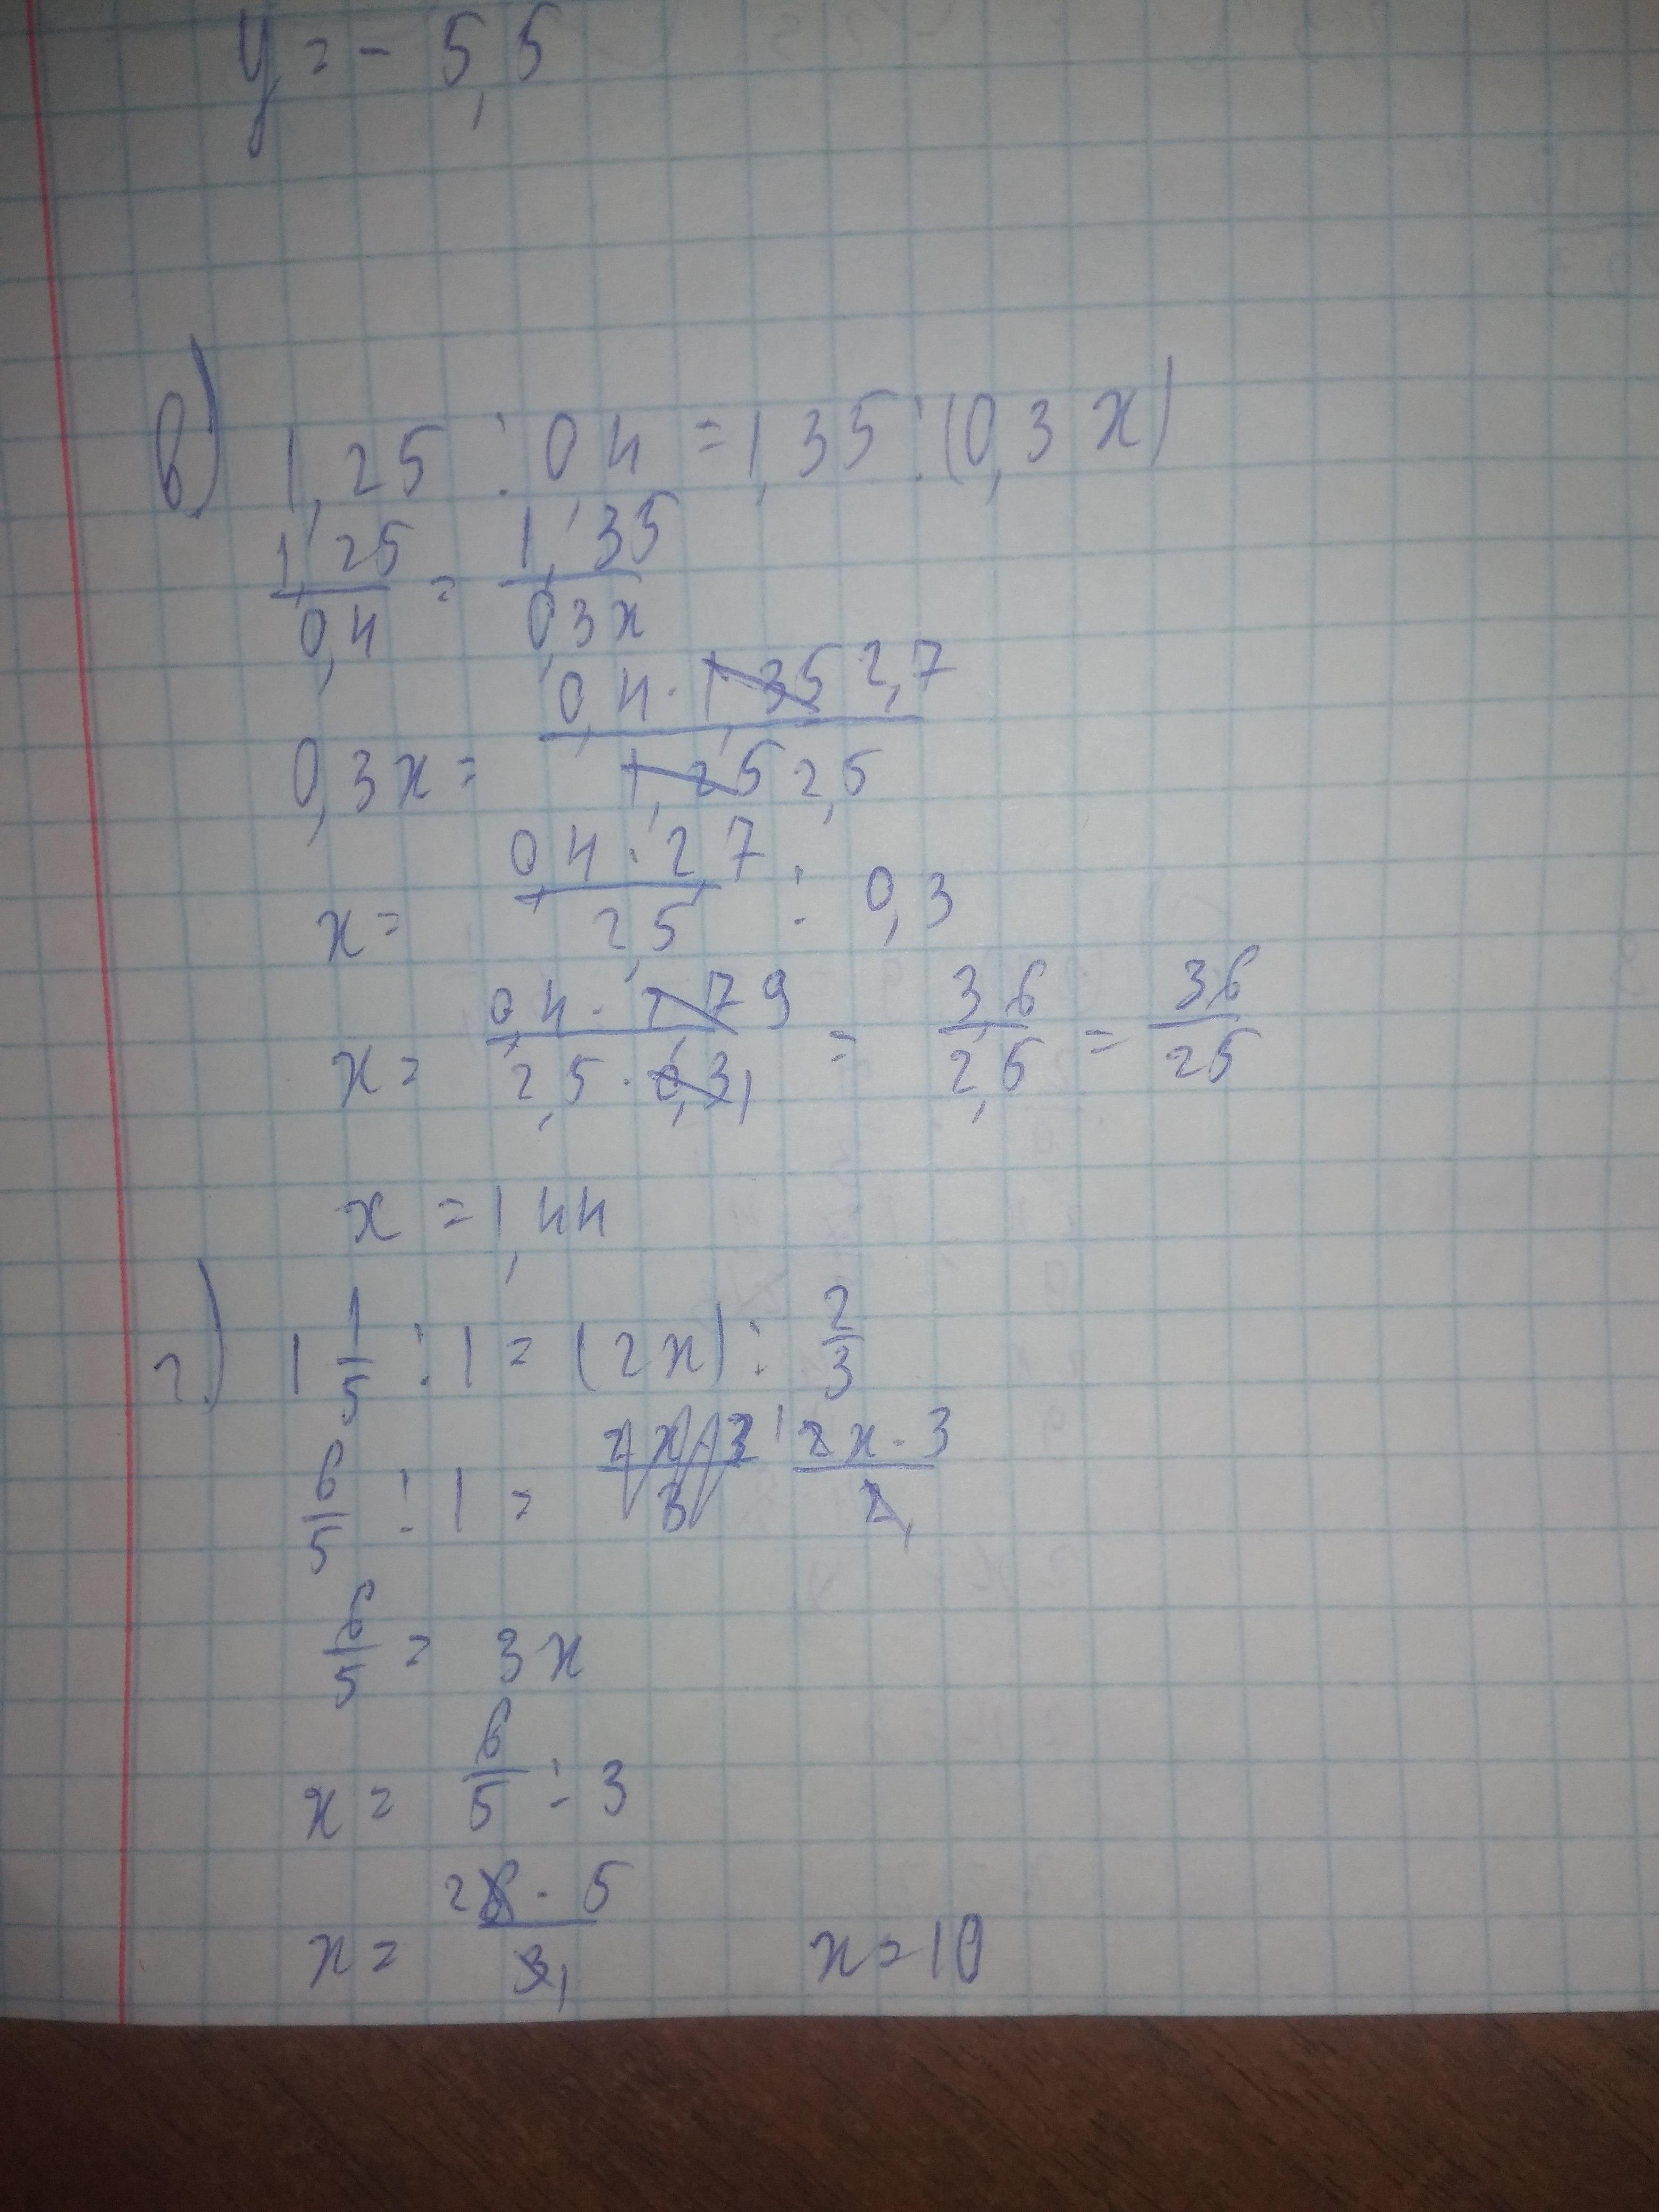 y = - 5,5
в) 1,25 : 0,4 = 1,35 : (0,3x)
1,25/0,4 = 1,35/0,3x
0,3x = 0,4 · 1,35 2,7 / 1,25 2,5
x = 0,4 · 2,7 / 2,5 : 0,3
x = 0,4 · 2,7 9 / 2,5 · 0,3 1 = 3,6/2,5 = 36/25
x = 1,44
г) 1 1/5 : 1 = (2x) : 2/3
6/5 : 1 = 2x · 3 / 2 1
6/5 = 3x
x = 6/5 : 3
x = 2 6 · 5 / 3 1 x = 10